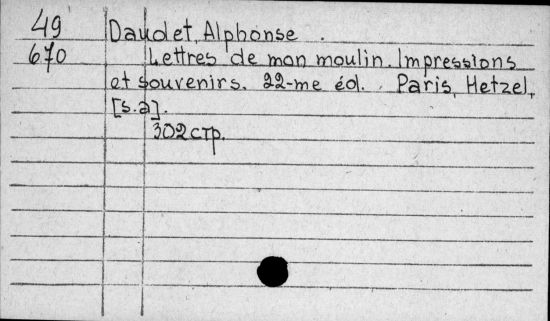 49 Daudet, Alphonse.
670 Lettres de mon moulin. Impressions
et souvenirs. 22-me éd. Paris, Hetzel,
[s.a].
302 стр.